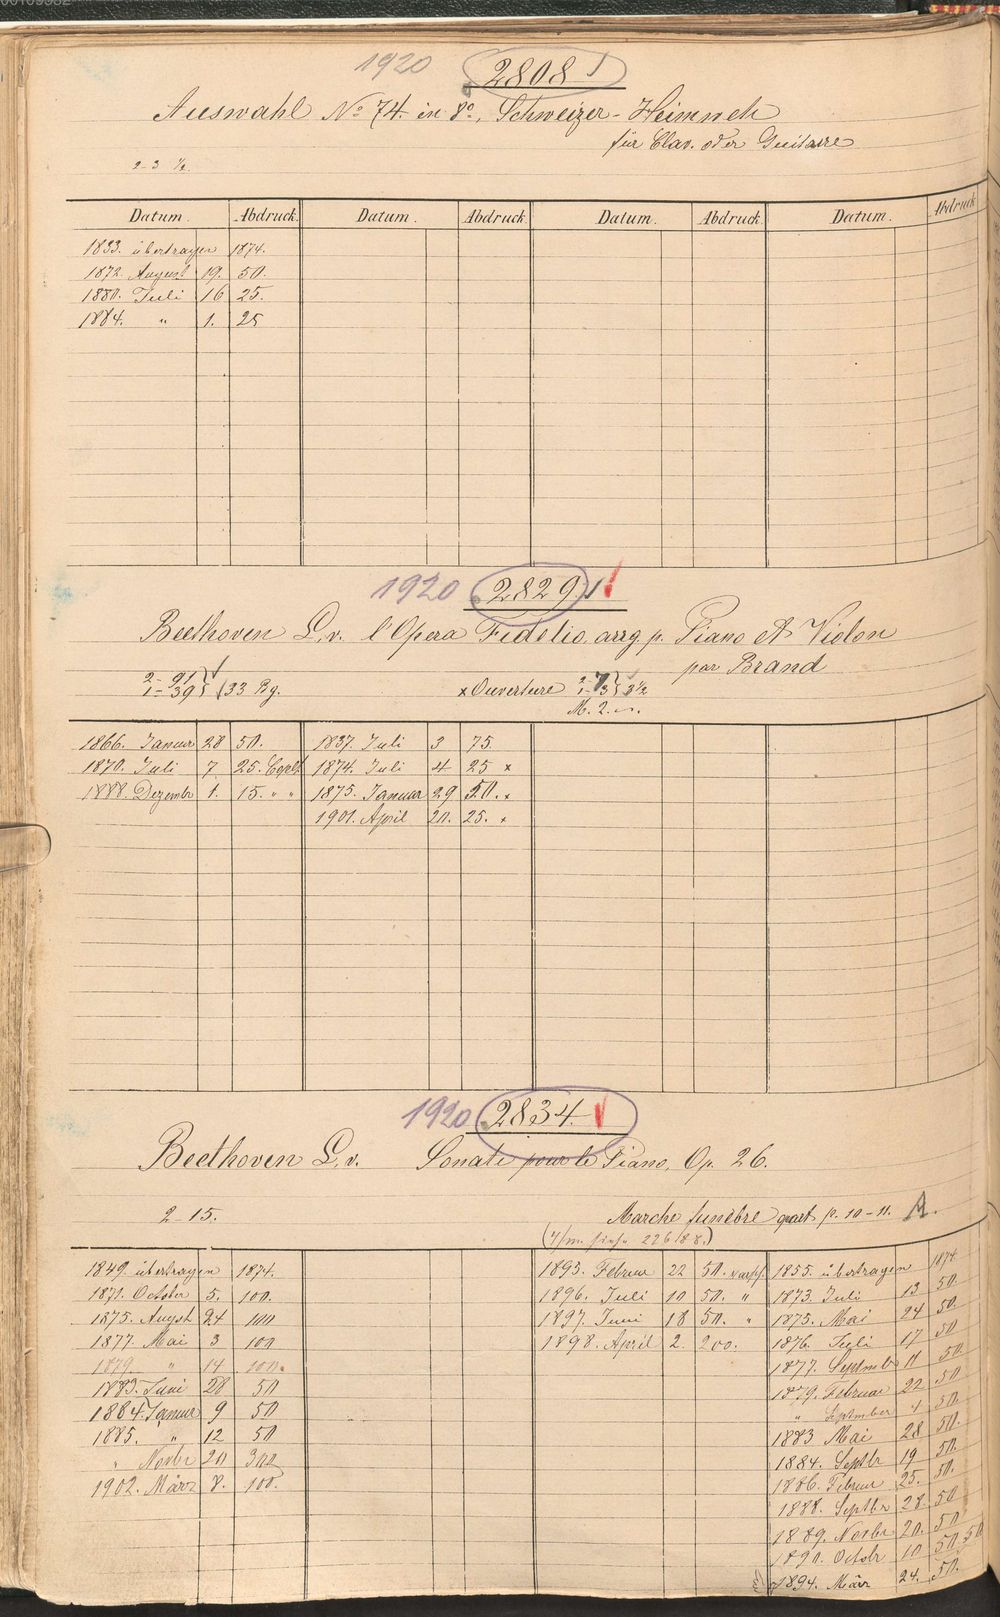 1920 2808
Auswahl No 74. in 8o, Schweizer-Heimweh
für Clav. oder Guitarre
2-3 ½.
Datum. Abdruck. Datum. Abdruck Datum. Abdruck. Datum. Abdruck
1833. übertragen 1874.
1872. August 19. 50.
1880. Juli 16 25.
1884. " 1. 25
1920 2829.
Beethoven L. v. l'Opera Fidelio, arrg. p. Piano et Violon
par Brand
2-91
1-39 33 Bg.
x Ouverture 2-7
1-3 3½
M. 2.
1866. Januar 28 50. 1837. Juli 3 75.
1870. Juli 7. 25. Cpplt 1874. Juli 4 25 x
1888. Dezembr 1. 15. " " 1875. Januar 29 50. x
1901. April 20. 25. x
1920 2834.
Beethoven L. v. Sonate pour le Piano, Op. 26.
2-15.
Marche funèbre apart p. 10-11. A.
1849. übertragen 1874. 1893. Februar 22 50. 1855. übertragen 1874
1871. October 5. 100. 1896. Juli 10 50. " 1873. Juli 13 50.
1875. August 24 100 1897. Juni 18 50. " 1875. Mai 24 50.
1877. Mai 3 100 1898. April 2. 200. 1876. Juli 17 50
1879. " 14 100. 1877. Septembr 11 50.
1883. Juni 28 50 1879. Februar 22 50
1884. Januar 9 50 " September 4 50.
1885. " 12 50 1883 Mai 28 50.
" Novbr 20 300 1884. Septbr 19 50.
1902. März 8. 100. 1886. Februar 25. 50.
1888. Septbr 28. 50
1889. Novbr 20. 50
1890. Octobr 10 50 50
1894. März 24. 50.